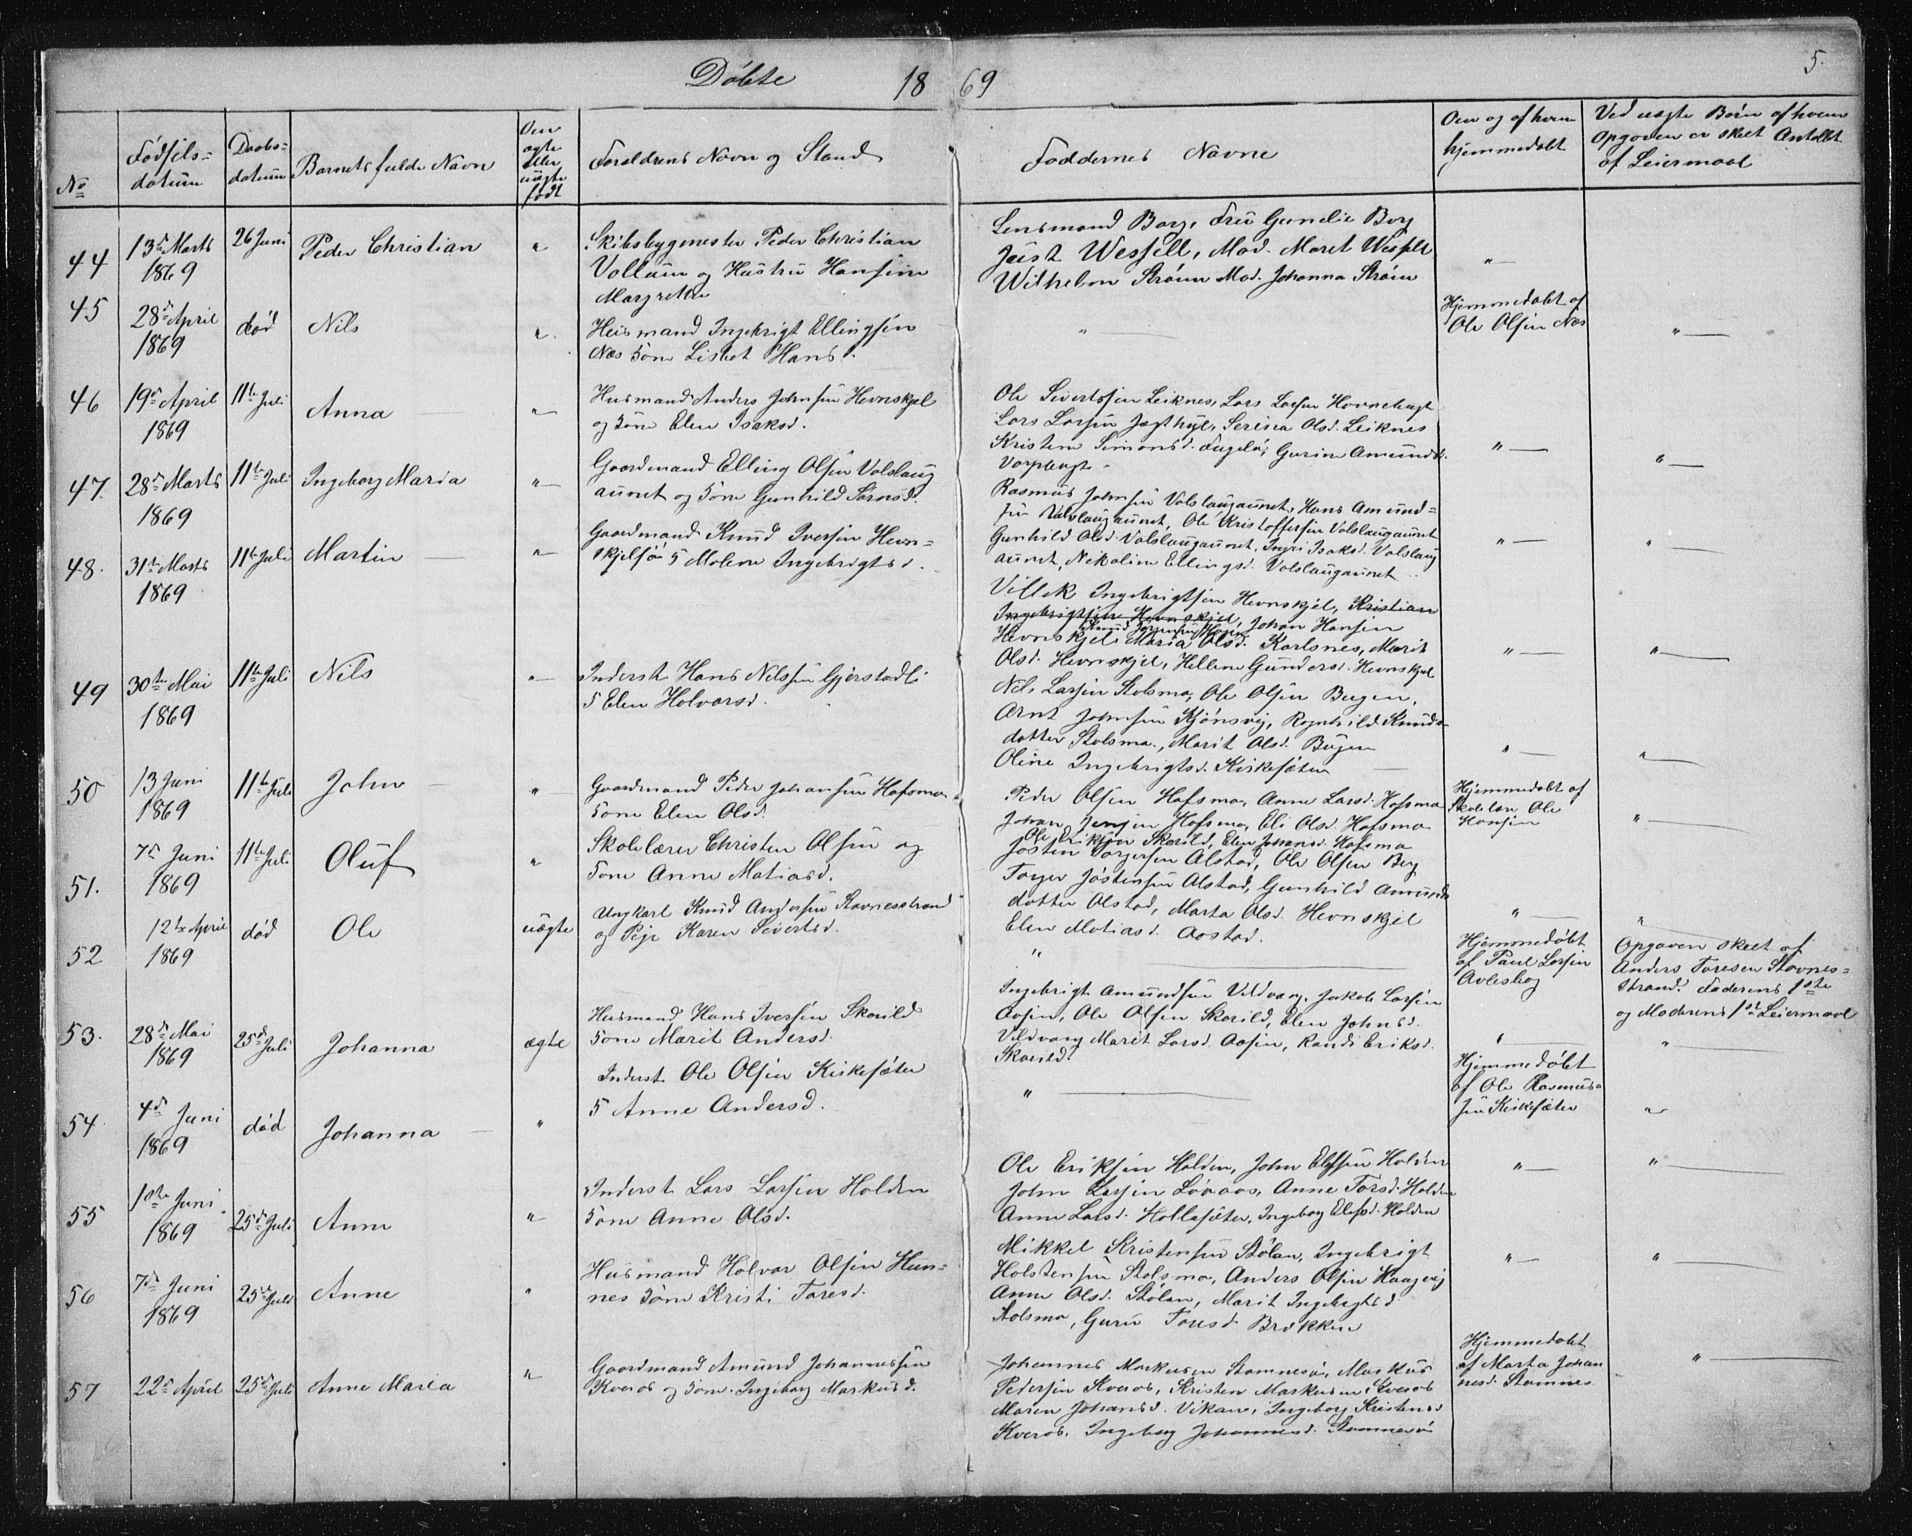 Döbte 1869
5.
No
Födsels-
datum
Daabs-
datum
Barnets fulde Navn
Om
ægte
eller
uægte
født
Forældrens Navn og Stand
Faddernes Navne
Om og af hvem
hjemmedøbt
Ved uægte Børn af hvem
Opgaven er skeet Antallet
af Leiermaal
44
13de Marts
1869
26 Juni
Peder Christian
"
Skibsbygmester Peder Christian
Vollan og Hustru Hansine
Margrethe
Lensmand Borg, Fru Gundie Borg
Just Wessell, Mad. Maret Wessell
Wilhelm Strøm Mad. Johanna Strøm
" —
45
28de April
1869
død
Nils
"
Husmand Ingebrigt Ellingsen
Næs Kone Lisbet Hansd.
" —
Hjemmedøbt af
Ole Olsen Næs
" —
46
19de April
1869
11te Juli
Anna
" —
Husmand Anders Johnsen Hevnskjel
og Kone Elen Isaksd.
Ole Sivertsen Leiknes, Lars Larsen Havnehagt
Lars Larsen Jægthyl, Serina Olsd. Leiknes
Kristen Simonsd. Fuglø, Gurine Amundsd.
" —
47.
28de Marts
1869
11te Juli
Ingeborg Maria
" —
Gaardmand Elling Olsen Volslaug
aunet og Kone Gunhild Larsd.
Rasmus Johnsen Volslaugaunet, Hans Amund-
sen Volslaugaunet, Ole Kristoffersen Volslaugaunet
Gunhild Olsd. Volslaugaunet, Ingri Isaksd. Volslaug
aunet, Nikoline Ellingsd. Volslaugaunet
" —
" —
48.
31te Marts
1869
11te Juli
Martin
" —
Gaardmand Knud Iversen Hevn-
skjelsø K Malene Ingebrigtsd.
Villek Ingebrigtsen Hevnskjel, Kristian
Ingebrigtsen Hevnskjel, Johan Hansen
Hevnskjel Maria Olsd. Karlsnes, Marit
Olsd. Hevnskjel, Helline Gundersd. Hevnskjel
" —
" —
49
30te Mai
1869
11te Juli
Nils
" —
Inderst Hans Nilsen Gjerstadli
K Elen Holvarsd.
Nils Larsen Stolsmo, Ole Olsen Bugen,
Arnt Johnsen Kjønsvig, Ragnhild Knuds-
datter Stolsmo, Marit Olsd. Bugen
Oline Ingebrigtsd. Kirkesæter
" —
" —
50
13 Juni
1869
11te Juli
John
" —
Gaardmand Peder Johansen Hafsmo
Kone Elen Olsd.
Peder Olsen Hafsmo, Anne Larsd. Hafsmo
Johan Jensen Hafsmo, Eli Olsd. Hafsmo
Ole Eriksen Skorild, Elen Johansd. Hafsmo
Hjemmedøbt af
Skolelær Ole
Hansen
" —
51.
7de Juni
1869
11te Juli
Oluf
"
Skolelærer Christen Olsen og
Kone Anne Matiasd.
Jøsten Torgersen Alstad, Ole Olsen Berg
Torger Jøstensen Alstad, Gunhild Amunds
datter Olstad, Marta Olsd. Hevnskjel
Elen Matiasd. Aostad.
" —
" —
52
12te April
1869
død
Ole
uægte
Ungkarl Knud Andersen Stavnesstrand
og Pige Karen Sivertsd.
" —
Hjemmedøbt
af Paul Larsen
Avlesbog
Opgaven skeet af
Anders Toresen Stavnes-
strand. Faderens 1ste
og Moderens 1ste Leiermaal
53.
28de Mai
1869
25de Juli
Johanna
ægte
Husmand Hans Iversen Skorild
Kone Marit Andersd.
Ingebrigt Amundsen Vildvang, Jakob Larsen
Aasen, Ole Olsen Skorild, Elen Johnsd.
Vildvang Marit Larsd. Aasen, Randi Eriksd.
Skorild.
" —
" —
54.
4de Juni
1869
død
Johanna
"
Inderst Ole Olsen Kirkesæter
K Anne Andersd.
" —
Hjemmedøbt
af Ole Rasmus-
sen Kirkesæter
"
55
10de Juni
1869
25de Juli
Anne
"
Inderst Lars Larsen Holden
Kone Anne Olsd.
Ole Eriksen Holden, John Elefsen Holden
John Larsen Løvaas, Anne Torsd. Holden
Anne Larsd. Hollasæter, Ingeborg Elefsd. Holden
" —
" —
56
7de Juni
1869
25de Juli
Anne
"
Husmand Holvar Olsen Hun-
nes Kone Kristi Toresd.
Mikkel Kristensen Stølan, Ingebrigt
Holstensen Stolsmo, Anders Olsen Haagvig
Anne Olsd. Stølan, Marit Ingebrigtsd.
Stolsmo, Guru Toresd Brækken
" —
" —
57
22de April
25de Juli
Anne Maria
"
Gaardmand Amund Johannessen
Kverø og Kone Ingeborg Markusd.
Johannes Markusen Stamnesø, Markus
Pedersen Kverø, Kristen Markusen Kverø
Maren Johansd. Vikan, Ingeborg Kristensd
Kverø, Ingeborg Johannesd. Stamnesø
Hjemmedøbt
af Marta Johan
nesd. Stamnes
" —